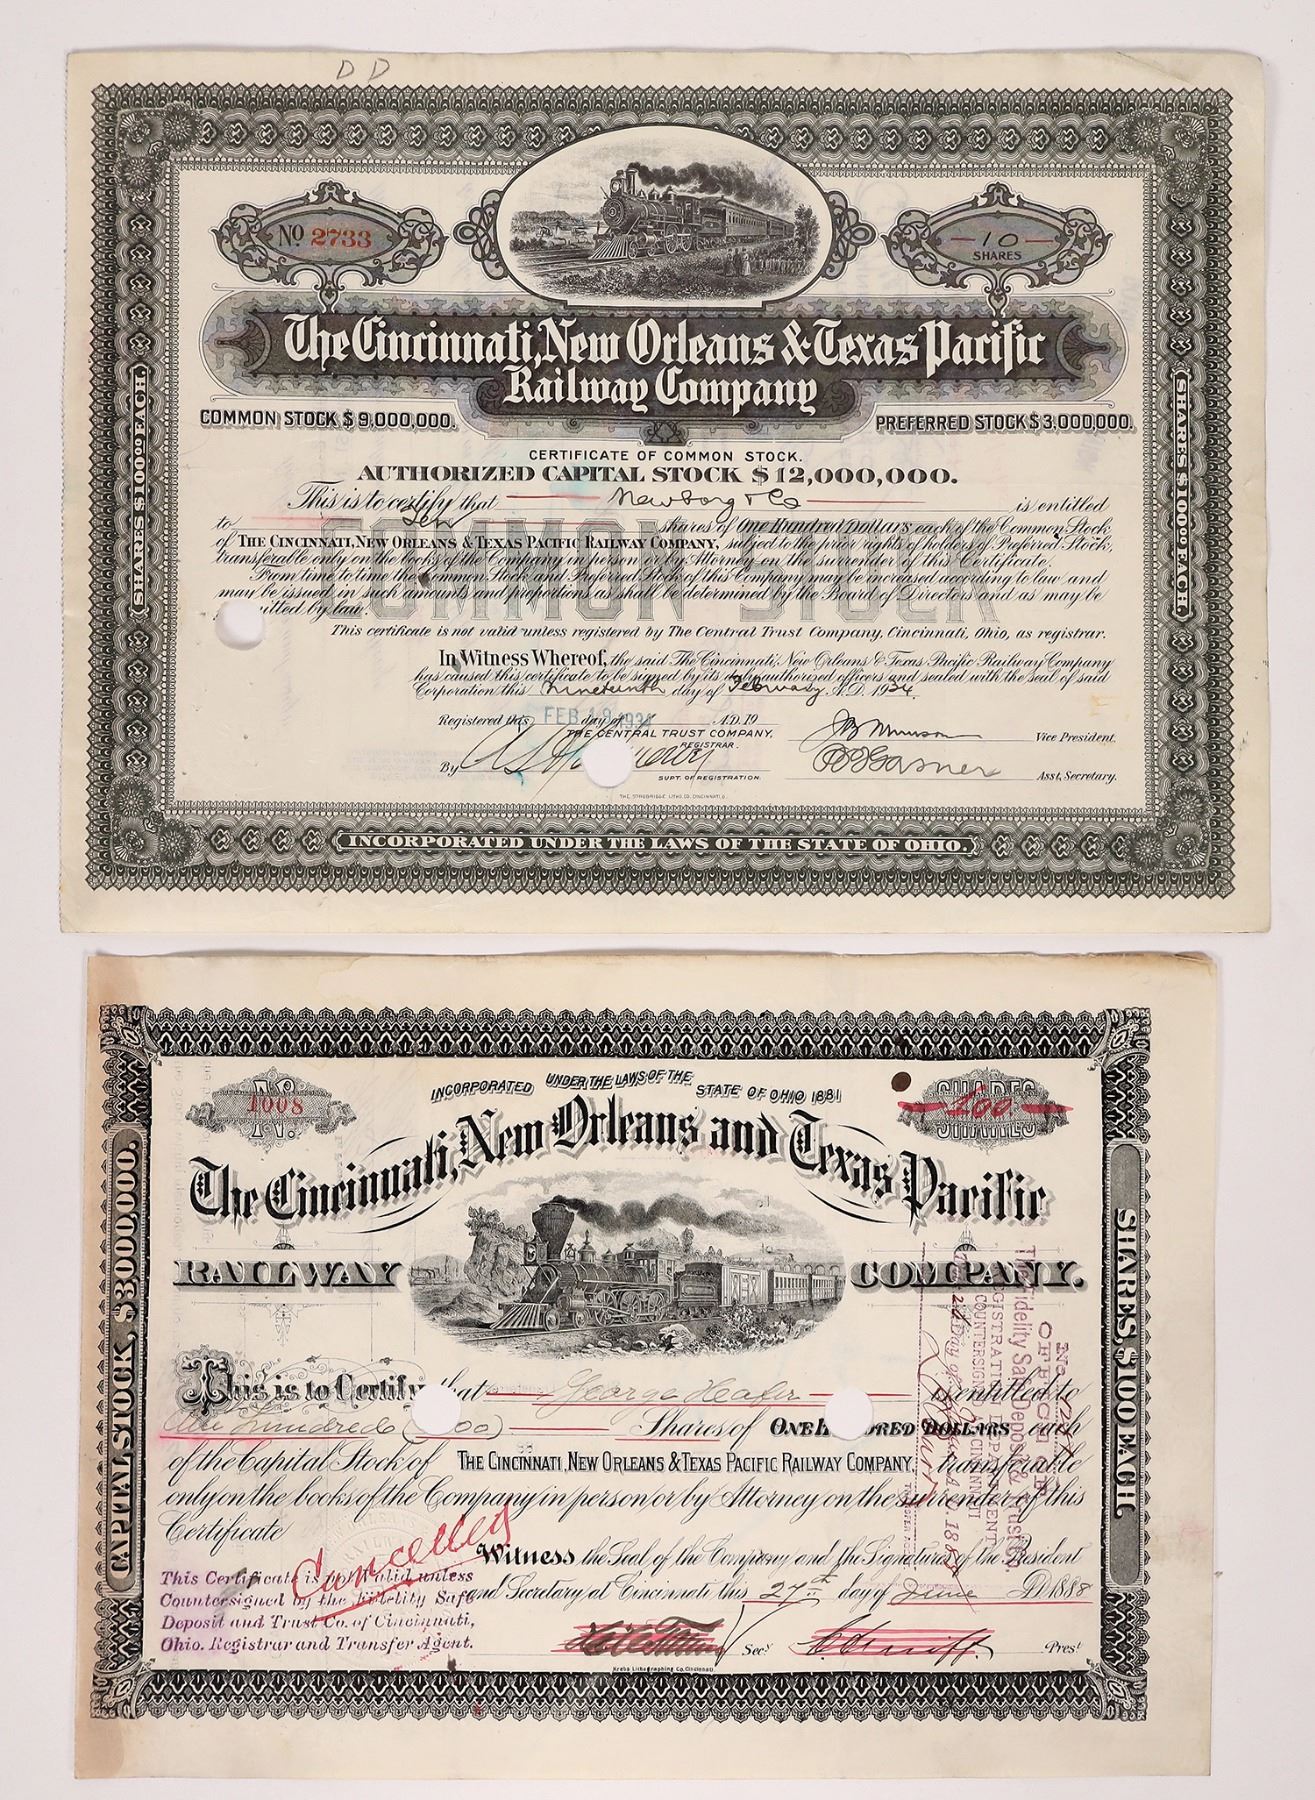 D D
No 2733
—10—
SHARES
The Cincinnati, New Orleans & Texas Pacific
Railway Company
COMMON STOCK $9,000,000.
PREFERRED STOCK $3,000,000.
CERTIFICATE OF COMMON STOCK.
AUTHORIZED CAPITAL STOCK $12,000,000.
This is to certify that Newborg & Co is entitled
to Ten shares of One Hundred Dollars each of the Common Stock
of THE CINCINNATI, NEW ORLEANS & TEXAS PACIFIC RAILWAY COMPANY, subject to the prior rights of holders of Preferred Stock,
transferable only on the books of the Company in person or by Attorney on the surrender of this Certificate.
From time to time the Common Stock and Preferred Stock of this Company may be increased according to law and
may be issued in such amounts and proportions as shall be determined by the Board of Directors and as may be
mitted by law.
COMMON STOCK
This certificate is not valid unless registered by The Central Trust Company, Cincinnati, Ohio, as registrar.
In Witness Whereof, the said The Cincinnati, New Orleans & Texas Pacific Railway Company
has caused this certificate to be signed by its duly authorized officers and sealed with the seal of said
Corporation this nineteenth day of February A.D. 1934.
Registered this FEB 19 1934 day of A.D. 19
THE CENTRAL TRUST COMPANY,
REGISTRAR.
Vice President.
By
SUPT. OF REGISTRATION.
Asst. Secretary.
THE STROBRIDGE LITHO. CO. CINCINNATI, O.
SHARES $100.00 EACH.
SHARES $100.00 EACH.
INCORPORATED UNDER THE LAWS OF THE STATE OF OHIO.
No.
1008
INCORPORATED UNDER THE LAWS OF THE STATE OF OHIO 1881
SHARES
100
SHARES
The Cincinnati, New Orleans and Texas Pacific
RAILWAY COMPANY.
CAPITAL STOCK, $3000,000.
SHARES, $100 EACH.
This is to Certify that George Heafer is entitled to
One Hundred (100) Shares of ONE HUNDRED DOLLARS each
of the Capital Stock of THE CINCINNATI, NEW ORLEANS & TEXAS PACIFIC RAILWAY COMPANY, transferable
only on the books of the Company in person or by Attorney on the surrender of this
Certificate
Cancelled
Witness the Seal of the Company and the Signatures of the President
and Secretary at Cincinnati this 27th day of June AD 1888
This Certificate is not Valid unless
Countersigned by the Fidelity Safe
Deposit and Trust Co. of Cincinnati,
Ohio. Registrar and Transfer Agent.
Secy
Prest
Krebs Lithographing Co. Cincinnati.
OFFICE OF
The Fidelity Safe Deposit & Trust Co.
REGISTRATION DEPARTMENT
COUNTERSIGNED CINCINNATI